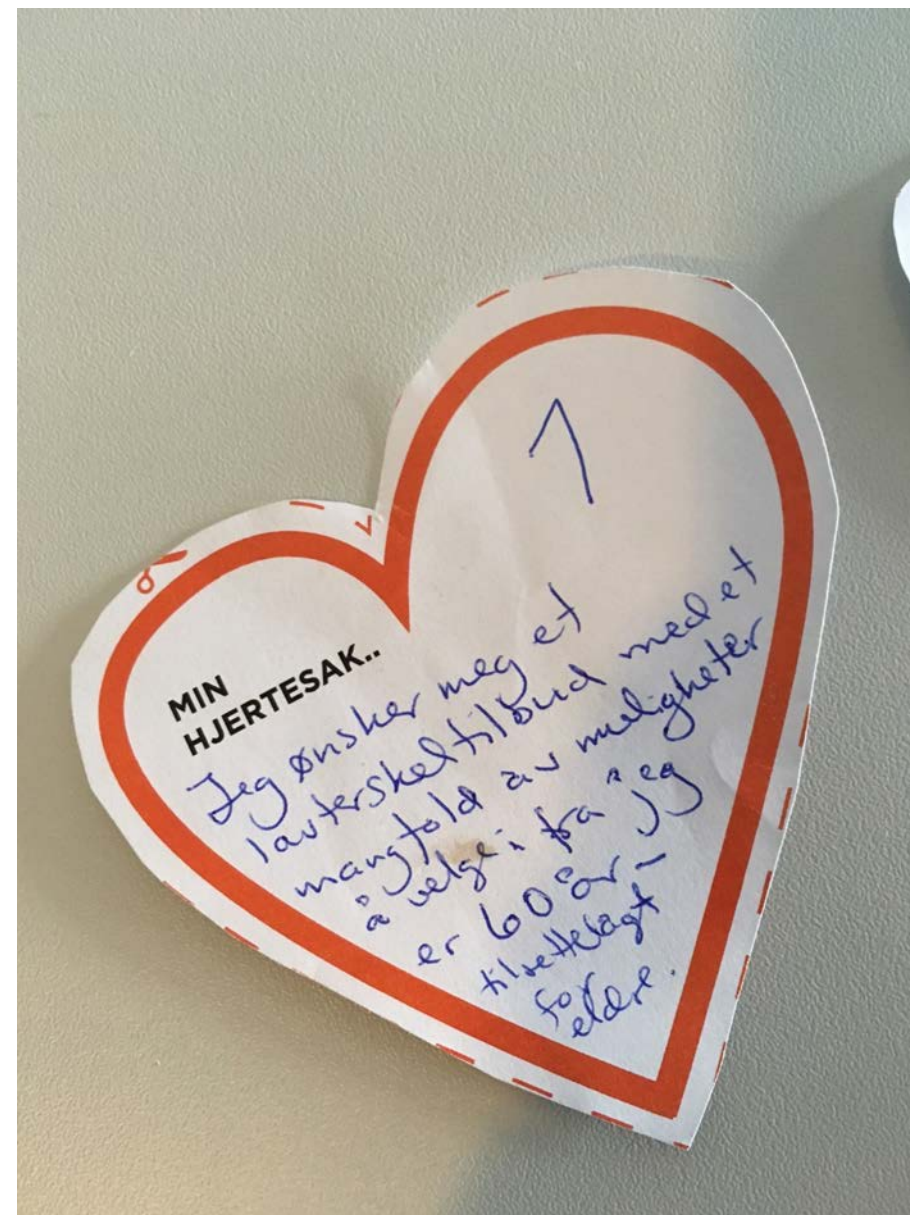 1
MIN
HJERTESAK..
Jeg ønsker meg et
lavterskeltilbud med et
mangfold av muligheter
å velge i fra jeg
er 60 år –
tilrettelagt
for
eldre.